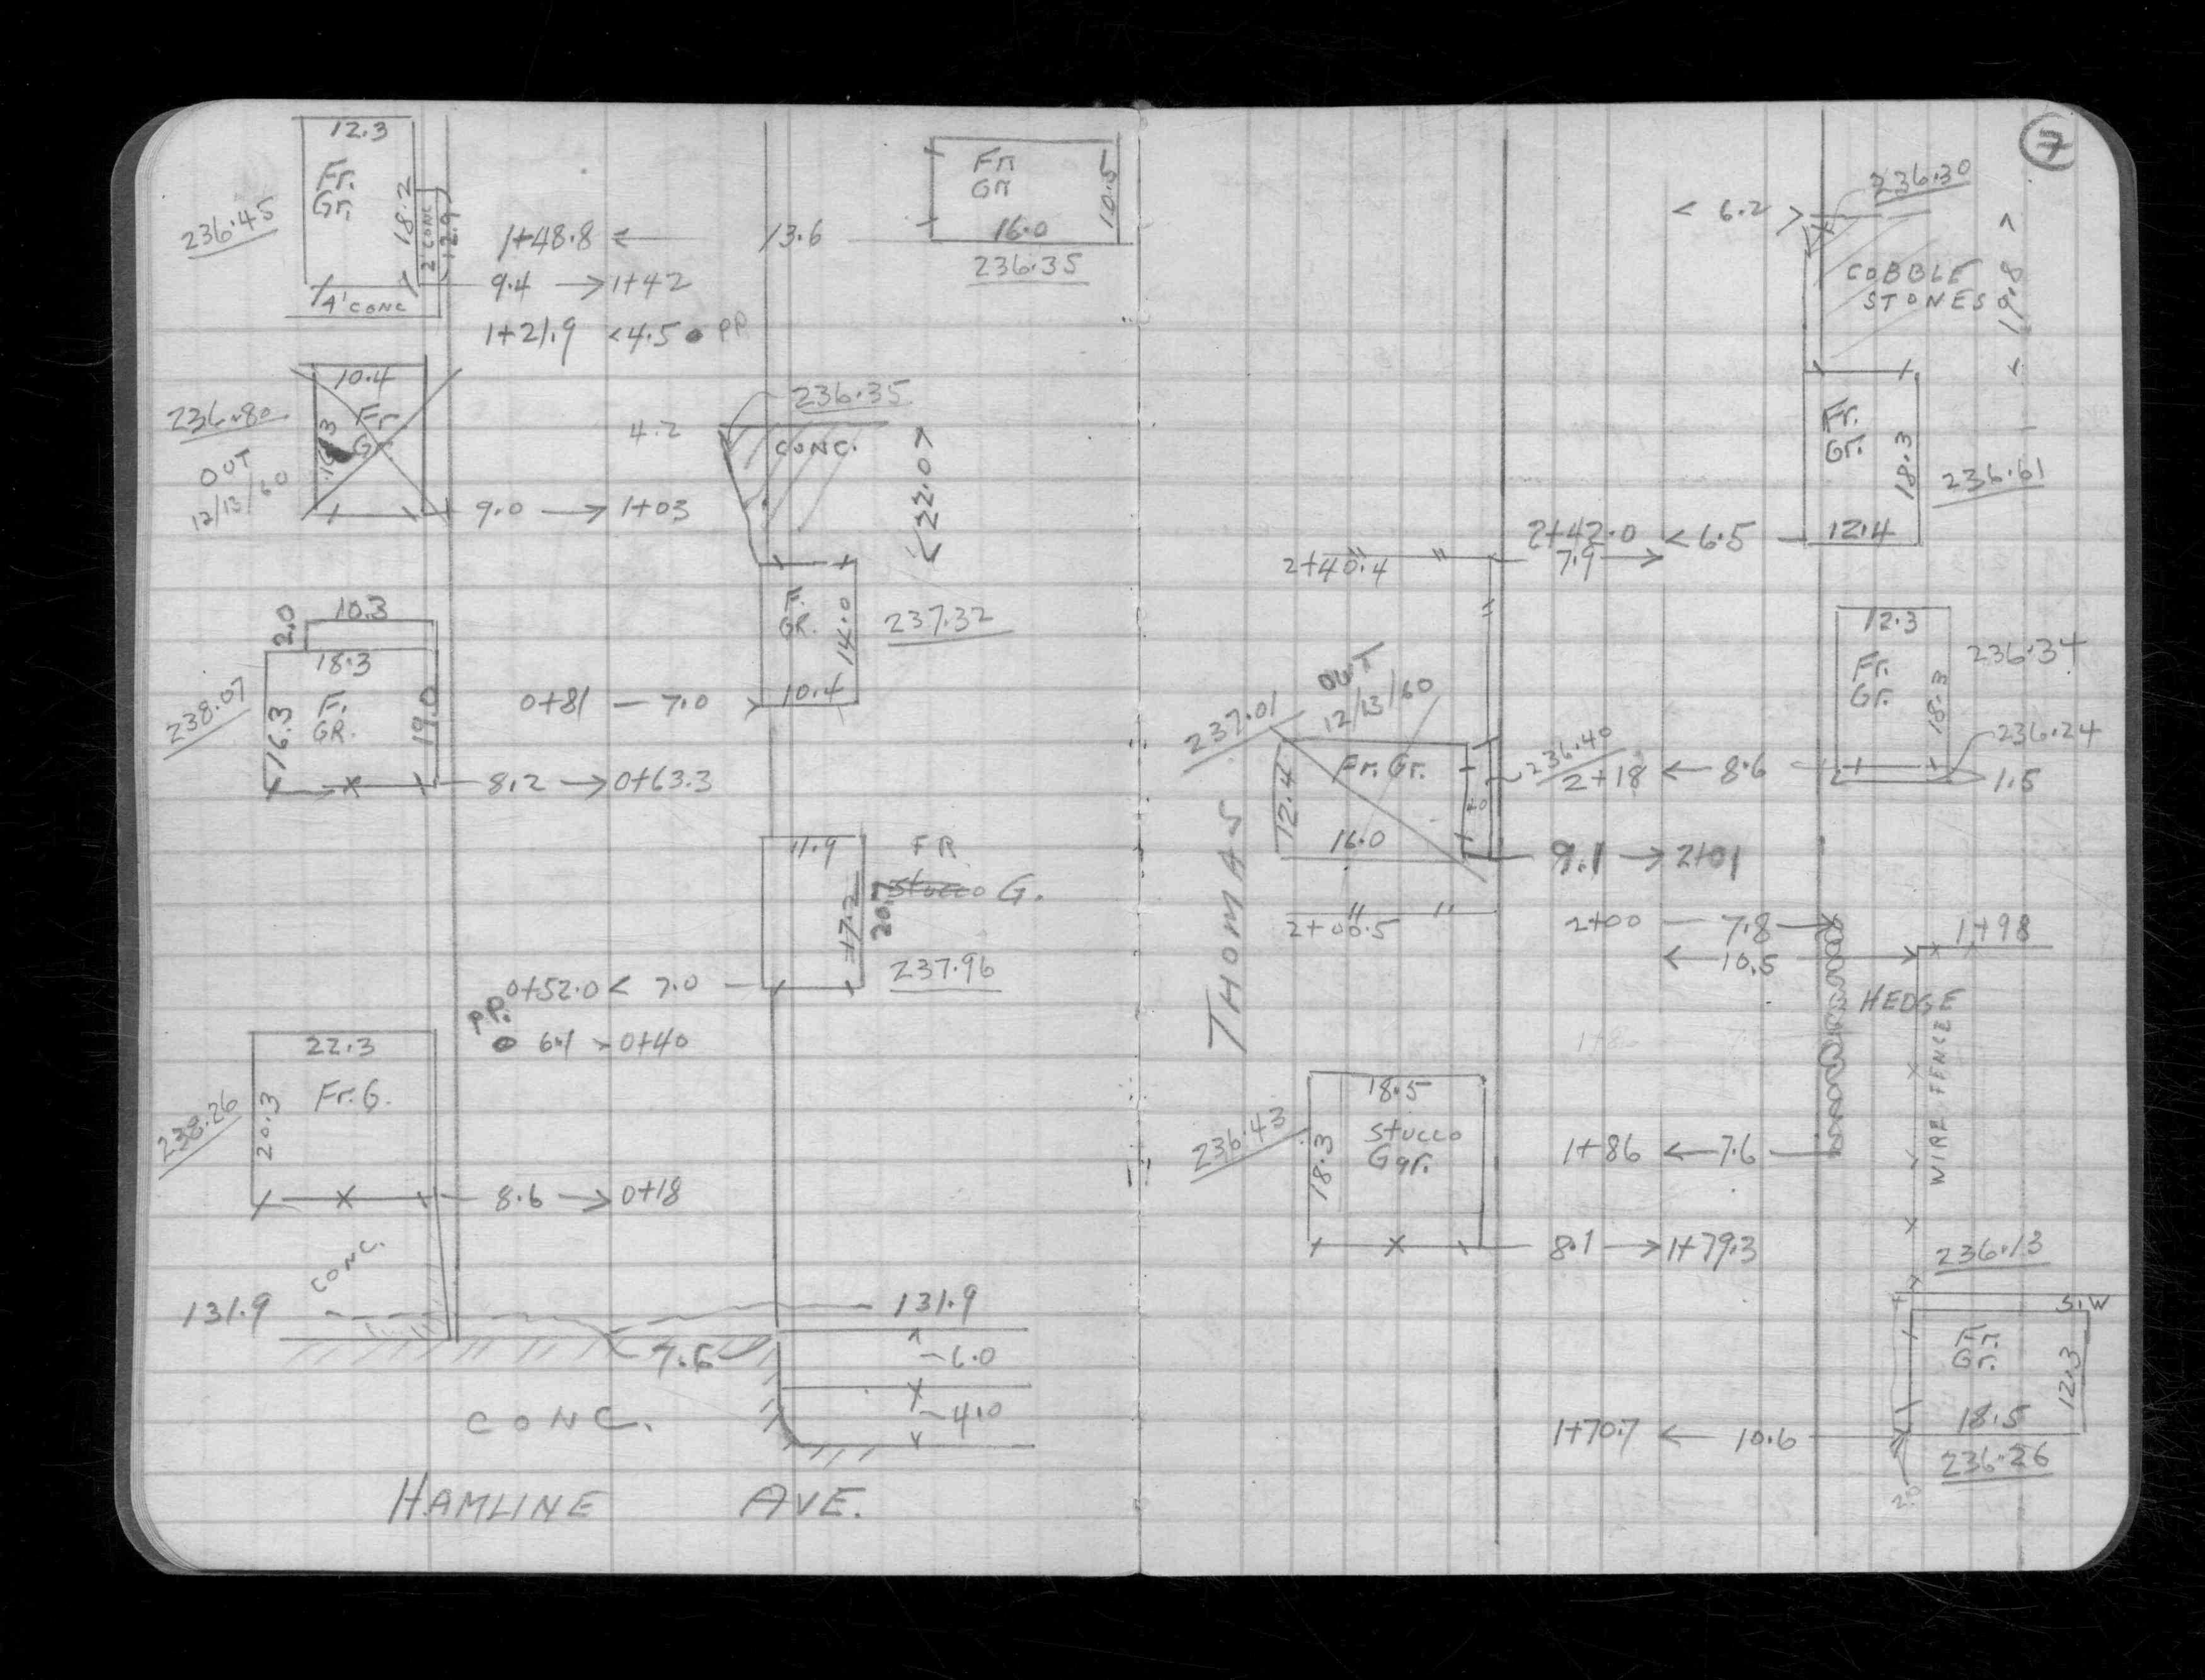 12.3
Fr.
Gr.
18.2
2' CONC
12.9
236.45
4' CONC
1+48.8 ← 13.6
Fr
Gr
10.5
16.0
236.35
9.4 → 1+42
1+21.9 < 4.5 PP
10.4
Fr
Gr.
236.80
OUT
12/13/60
9.0 → 1+03
236.35
4.2
CONC.
<22.0>
F.
GR.
14.0
237.32
10.4
0+81 — 7.0
10.3
2.0
18.3
F.
GR.
16.3
19.0
238.07
8.2 → 0+63.3
11.9
FR
Stucco G.
17.2
20.7
237.96
0+52.0 < 7.0
P.P.
6.1 > 0+40
22.3
Fr. G.
20.3
238.26
8.6 → 0+18
CONC.
131.9
131.9
7.6
6.0
4.0
CONC.
HAMLINE AVE.
7
236.30
< 6.2 >
COBBLE
STONES
19.8
Fr.
Gr.
18.3
236.61
12.4
2+42.0 < 6.5
7.9 →
2+40.4
12.3
Fr.
Gr.
18.3
236.34
236.24
1.5
OUT
12/13/60
237.01
Fr. Gr.
12.4
16.0
236.40
2+18 ← 8.6
9.1 → 2+01
THOMAS
2+00.5
2+00 — 7.8 →
← 10.5 →
1+98
HEDGE
WIRE FENCE
18.5
Stucco
Gar.
18.3
236.43
1+86 ← 7.6
8.1 → 1+79.3
236.13
S.W
Fr.
Gr.
12.3
18.5
236.26
1+70.7 ← 10.6
2.0